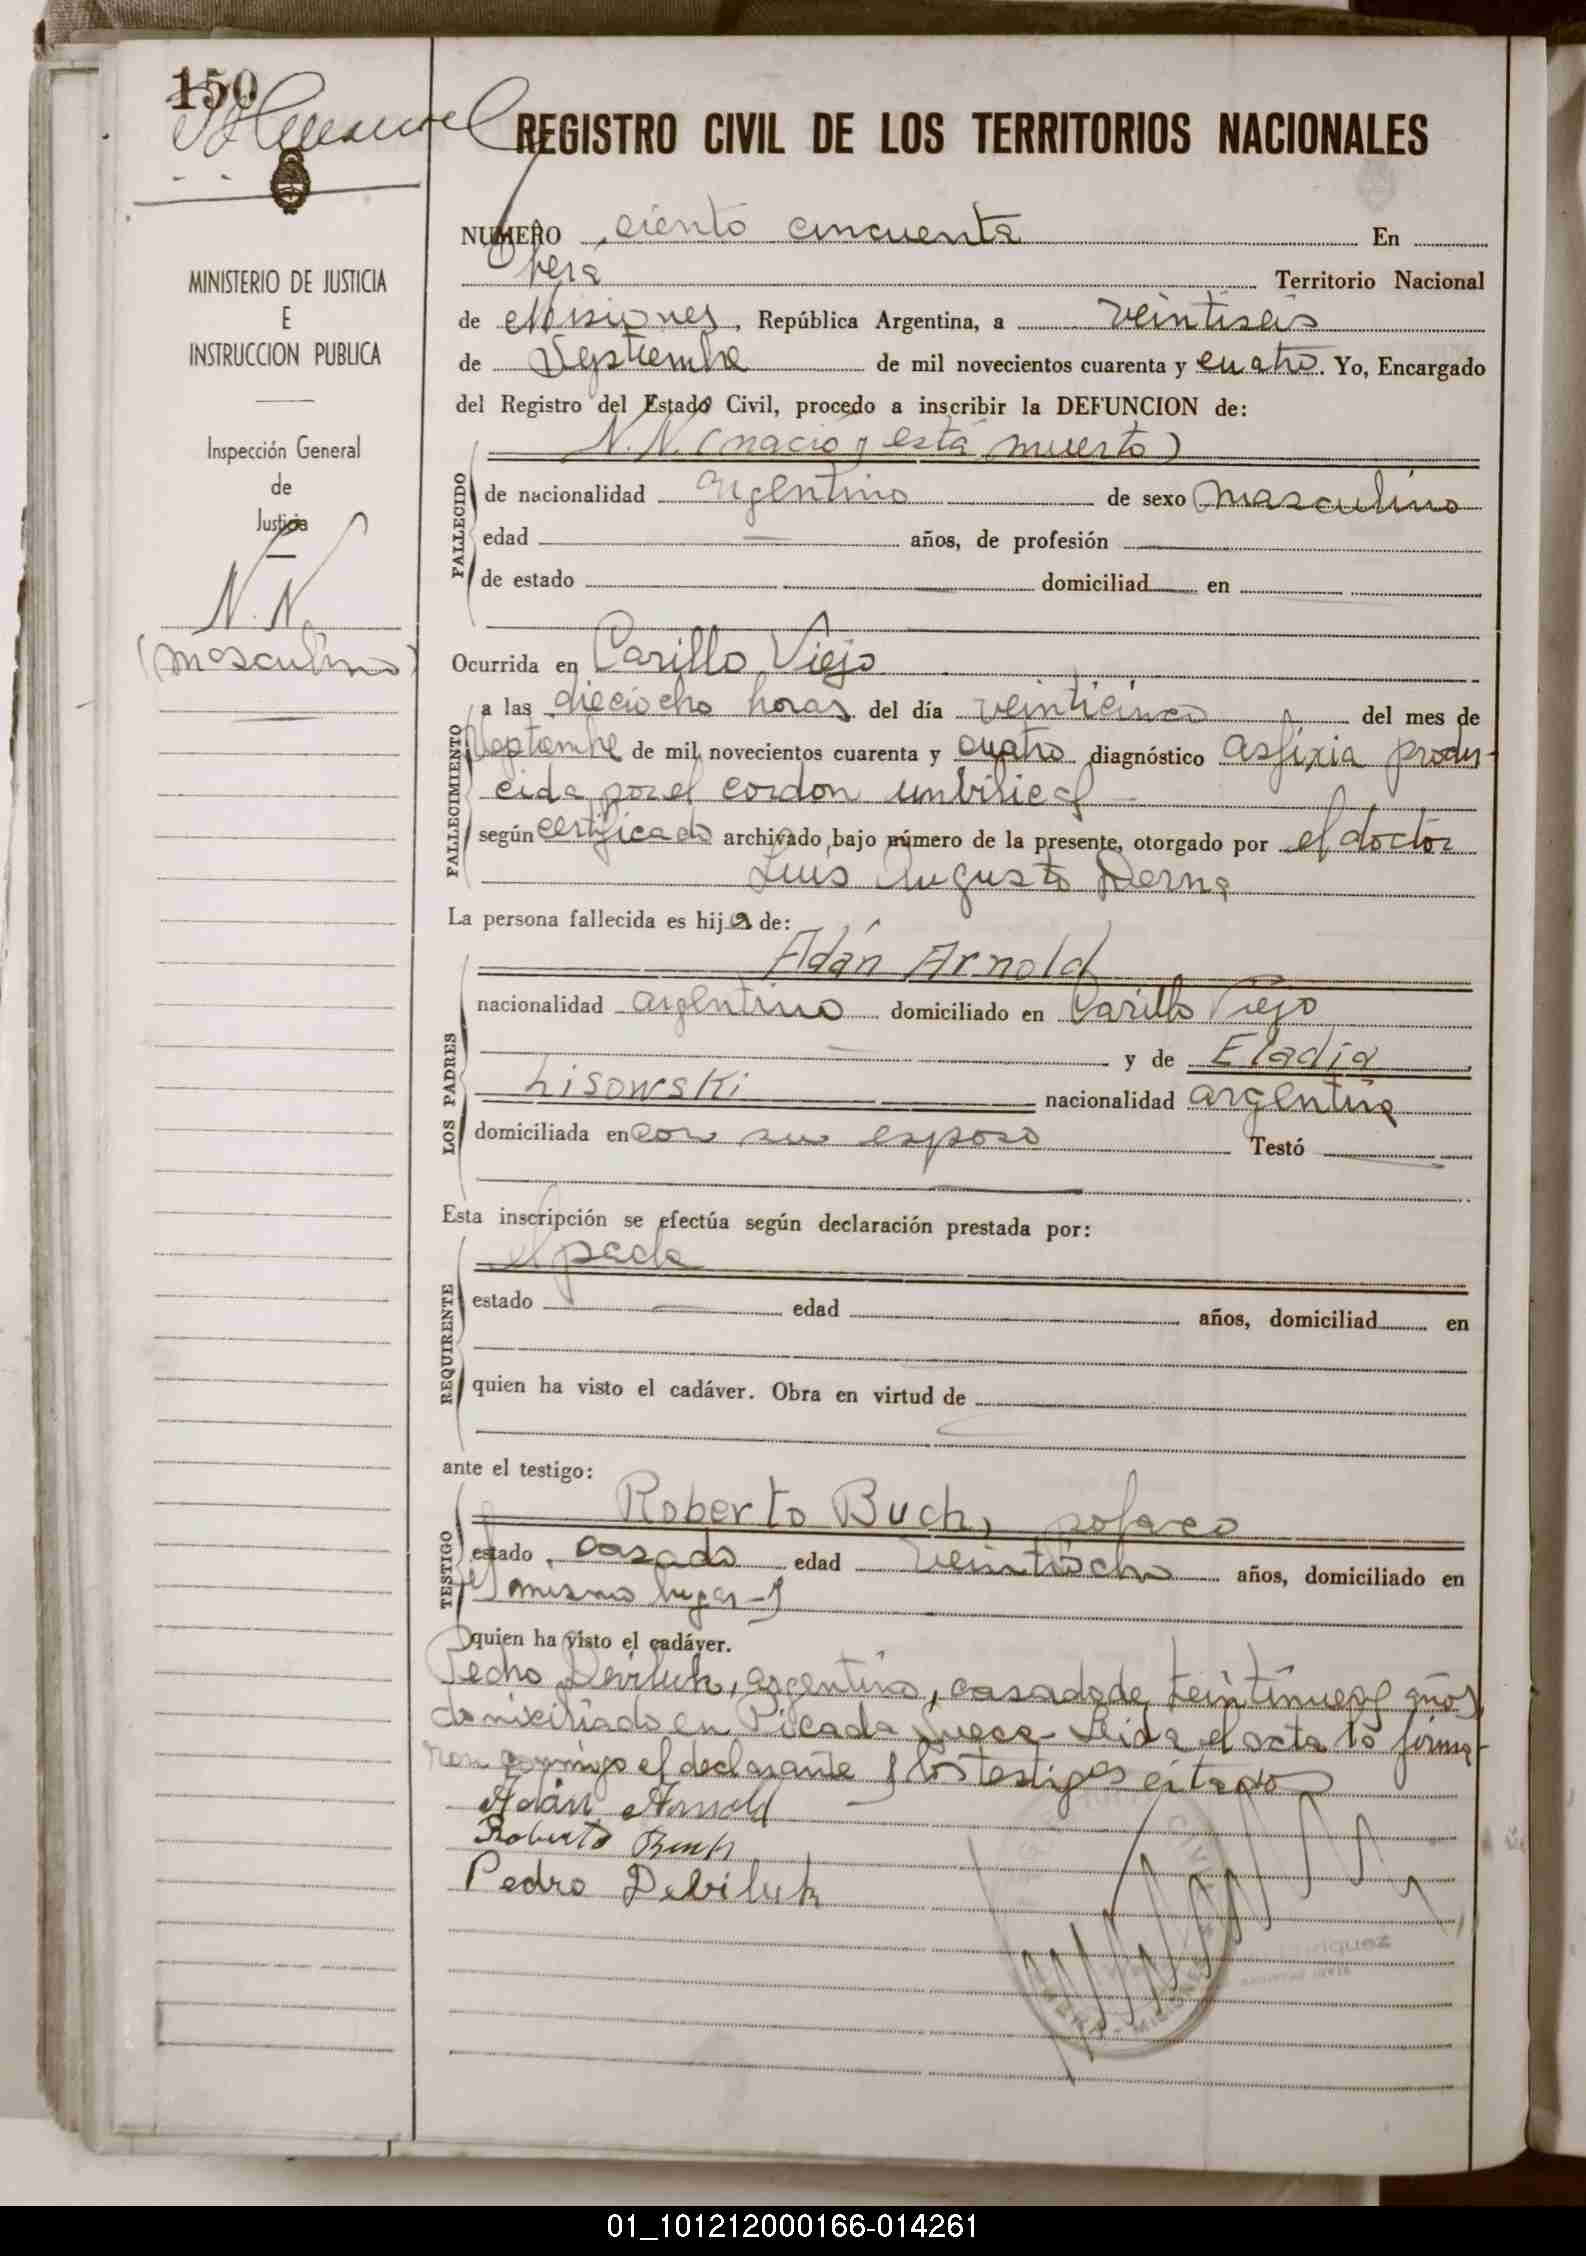 150
REGISTRO CIVIL DE LOS TERRITORIOS NACIONALES
MINISTERIO DE JUSTICIA
E
INSTRUCCION PUBLICA
Inspección General
de
Justicia
N.N.
(masculino)
NUMERO ciento cincuenta En
Oberá Territorio Nacional
de Misiones, República Argentina, a veintiseis
de Septiembre de mil novecientos cuarenta y cuatro. Yo, Encargado
del Registro del Estado Civil, procedo a inscribir la DEFUNCION de:
N.N. (nació y está muerto)
FALLECIDO
de nacionalidad argentino de sexo masculino
edad años, de profesión
de estado domiciliad en
Ocurrida en Carillo Viejo
FALLECIMIENTO
a las dieciocho horas del día veinticinco del mes de
Septiembre de mil novecientos cuarenta y cuatro diagnóstico asfixia produ-
cida por el cordon umbilical
según certificado archivado bajo número de la presente, otorgado por el doctor
Luis Augusto Derna
La persona fallecida es hijo de:
LOS PADRES
Adán Arnold
nacionalidad argentino domiciliado en Carillo Viejo
y de Eladia
Lisowski nacionalidad argentina
domiciliada en con su esposo Testó
Esta inscripción se efectúa según declaración prestada por:
REQUIRENTE
el padre
estado edad años, domiciliad en
quien ha visto el cadáver. Obra en virtud de
ante el testigo:
TESTIGO
Roberto Buch, polaco
estado casado edad veintiocho años, domiciliado en
el mismo lugar y
quien ha visto el cadáver.
Pedro Deviluk, argentino, casado de treintinueve años
domiciliado en Picada Sueca - Leida el acta la firma-
ron conmigo el declarante y los testigos citados
Adán Arnold
Roberto Buch
Pedro Debiluk
OBERA - MISIONES
01_101212000166-014261